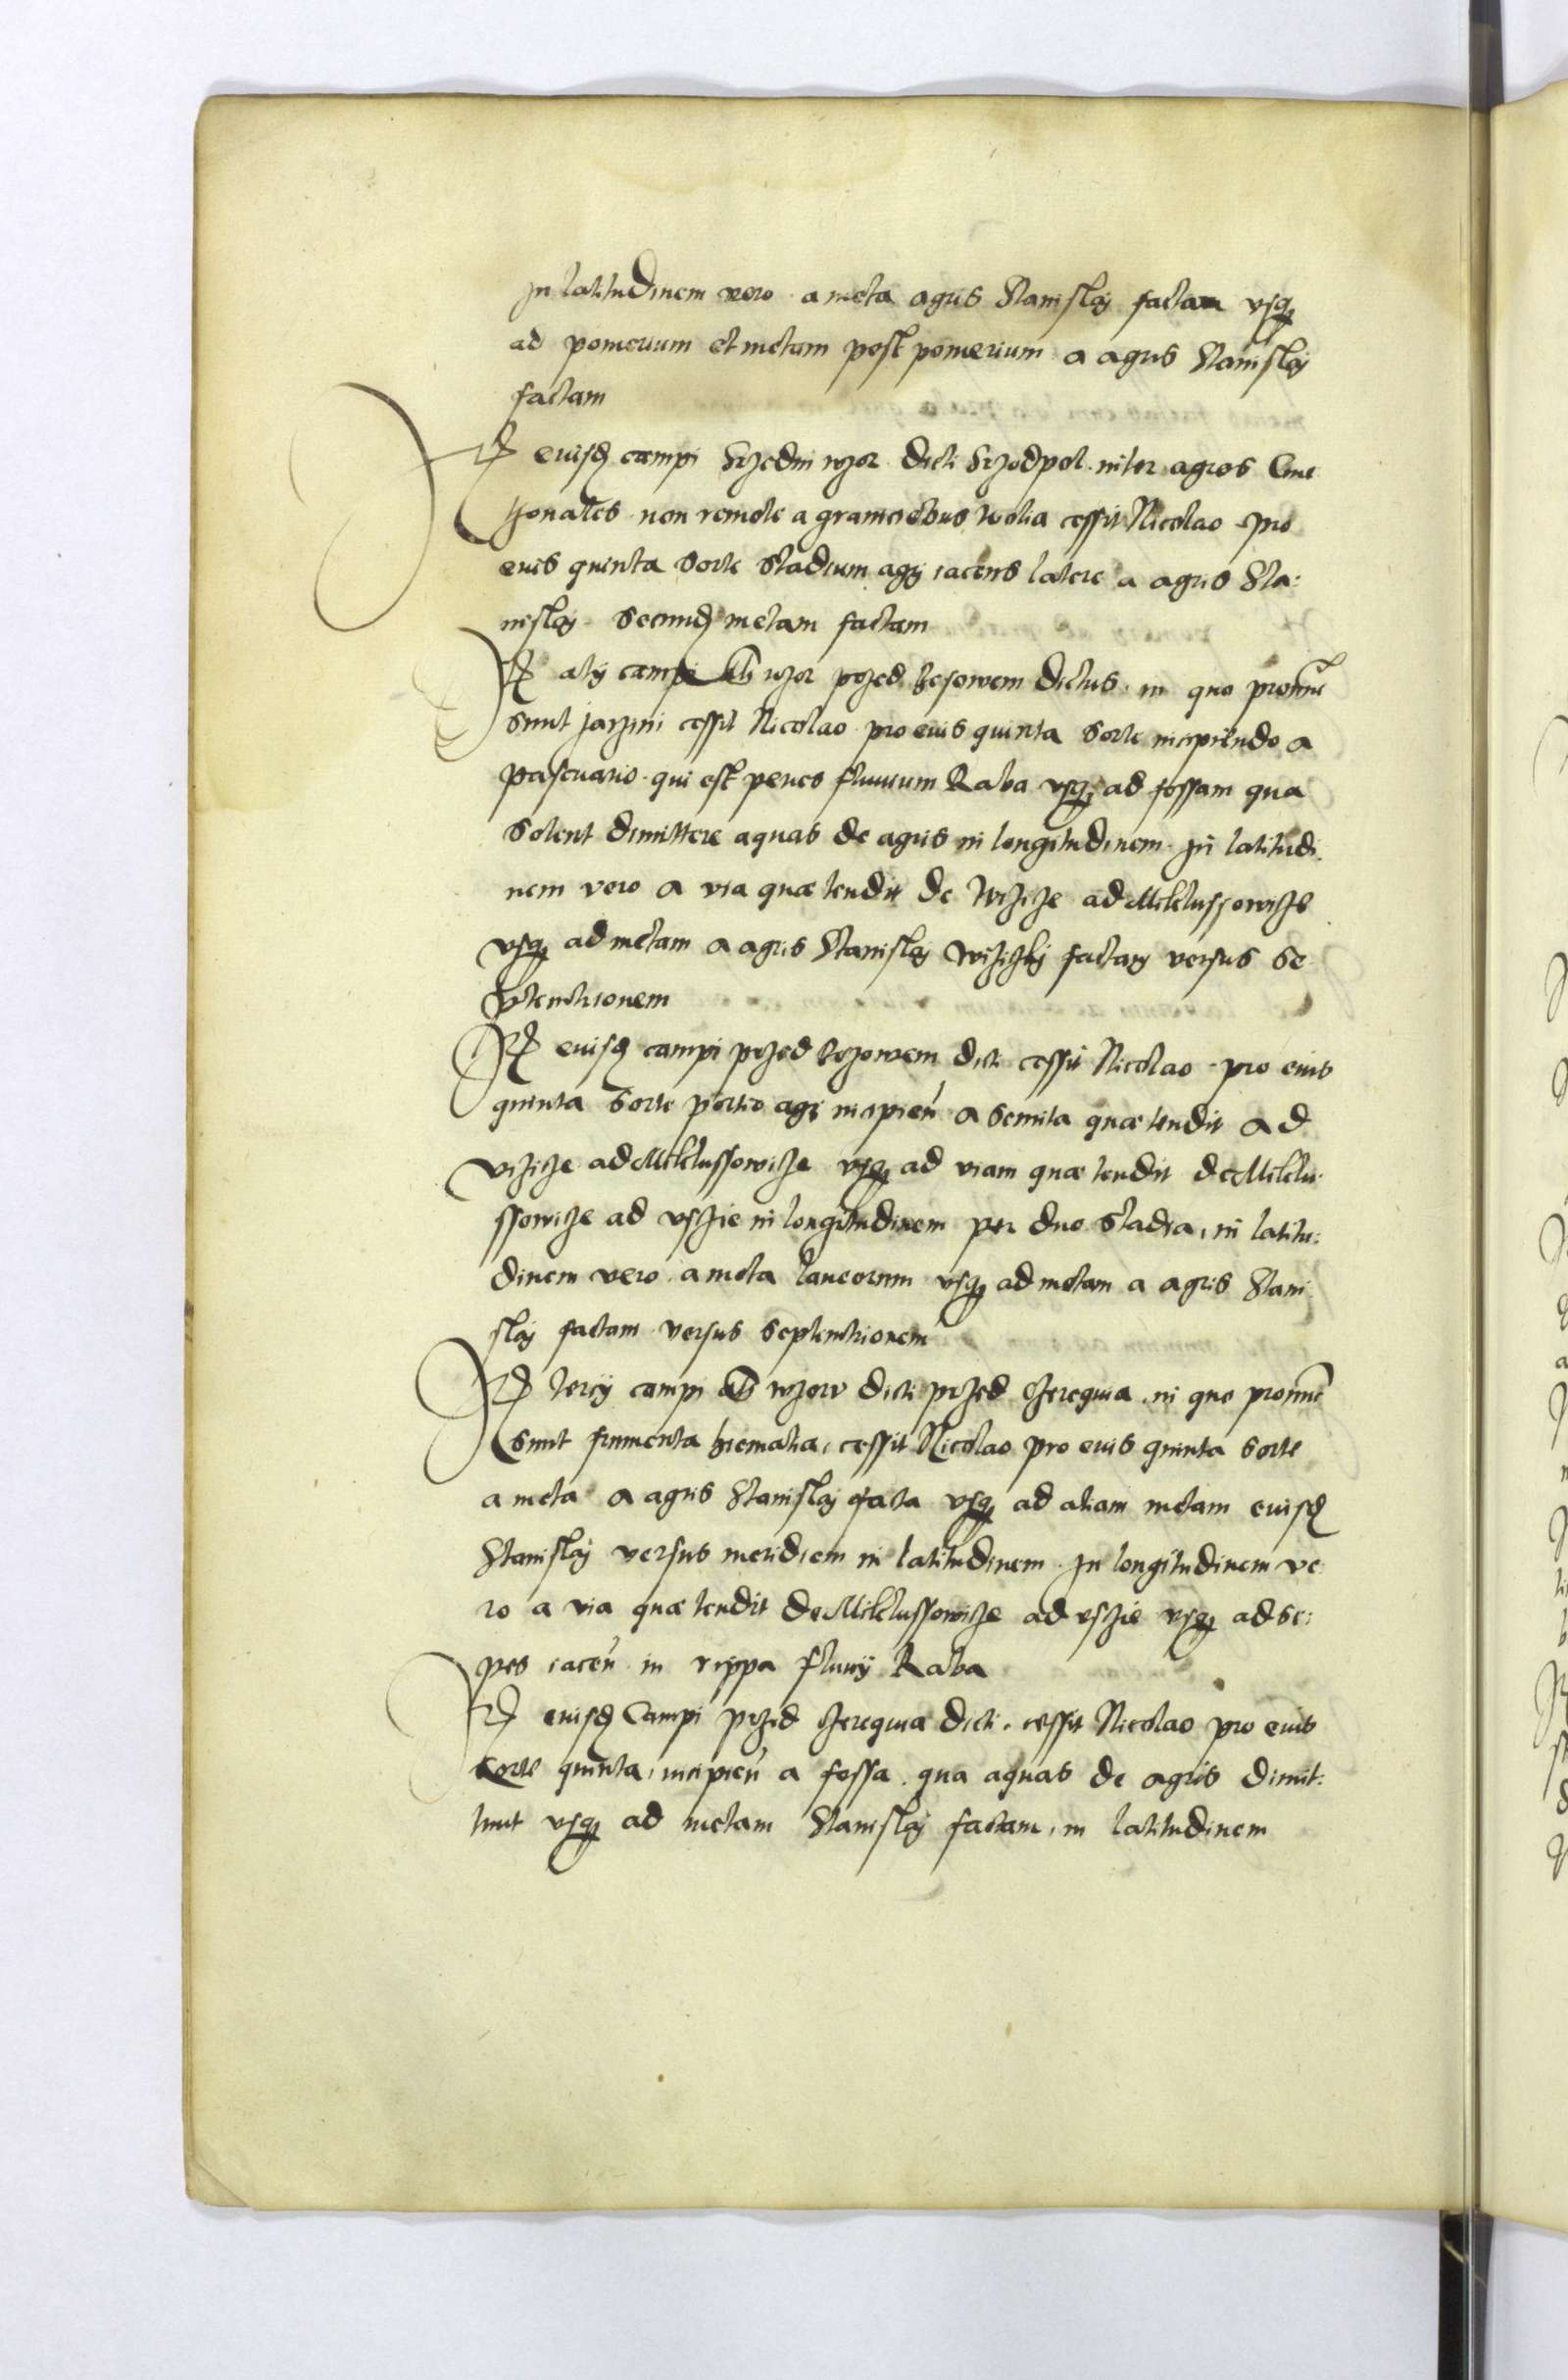 In latitudinem vero a meta agris Stanislaj factam vsq
ad pomerium et metam post pomerium a agris Stanislaj
factam
It eiusd campi Srzedni wzor dicti Srzodpol inter agros Cme
thonales non remote a graniciebus Wolia cessit Nicolao pro
eius quinta sorte stadium agri iacens latere a agris Sta:
nislaj secund metam factam
It alij campi als wzor przed lesowem dictus, in quo pronunc
sunt jarzini cessit Nicolao pro eius quinta sorte incipiendo a
pascuario qui est penes fluuium Raba vsq ad fossam qua
solent dimittere aquas de agris in longitudinem In latitudi
nem vero a via quae tendit de Wiziże ad Miklussowize
vsq ad metam a agris Stanislaj Wizizkj factam versus Se
ptemtrionem
It eiusd campi przed lesowem dicti cessit Nicolao pro eius
quinta sorte portio agri incipien a semita quae tendit ad
vizize ad Miklussowize vsq ad viam quae tendit de Miklu
ssowize ad vszie in longitudinem per duo stadia, in latitu:
dinem vero a meta laneorum vsq ad metam a agris Stani
slaj factam versus Septemtrionem
It tercij campi als wzorv dicti przed Cerequia in quo pronunc
sunt frumenta hiemalia, cessit Nicolao pro eius quinta sorte
a meta a agris Stanislaj facta vsq ad aliam metam eiusd
Stanislaj versus meridiem in latitudinem In longitudinem ve
ro a via quae tendit de Miklussowize ad vszie vsq ad se:
pes iacen in rippa fluuij Raba
It eiusd Campi przed Cerequia dicti, cessit Nicolao pro eius
sorte quinta, incipien a fossa qua aquas de agris dimit:
tunt vsq ad metam Stanislaj factam, in latitudinem